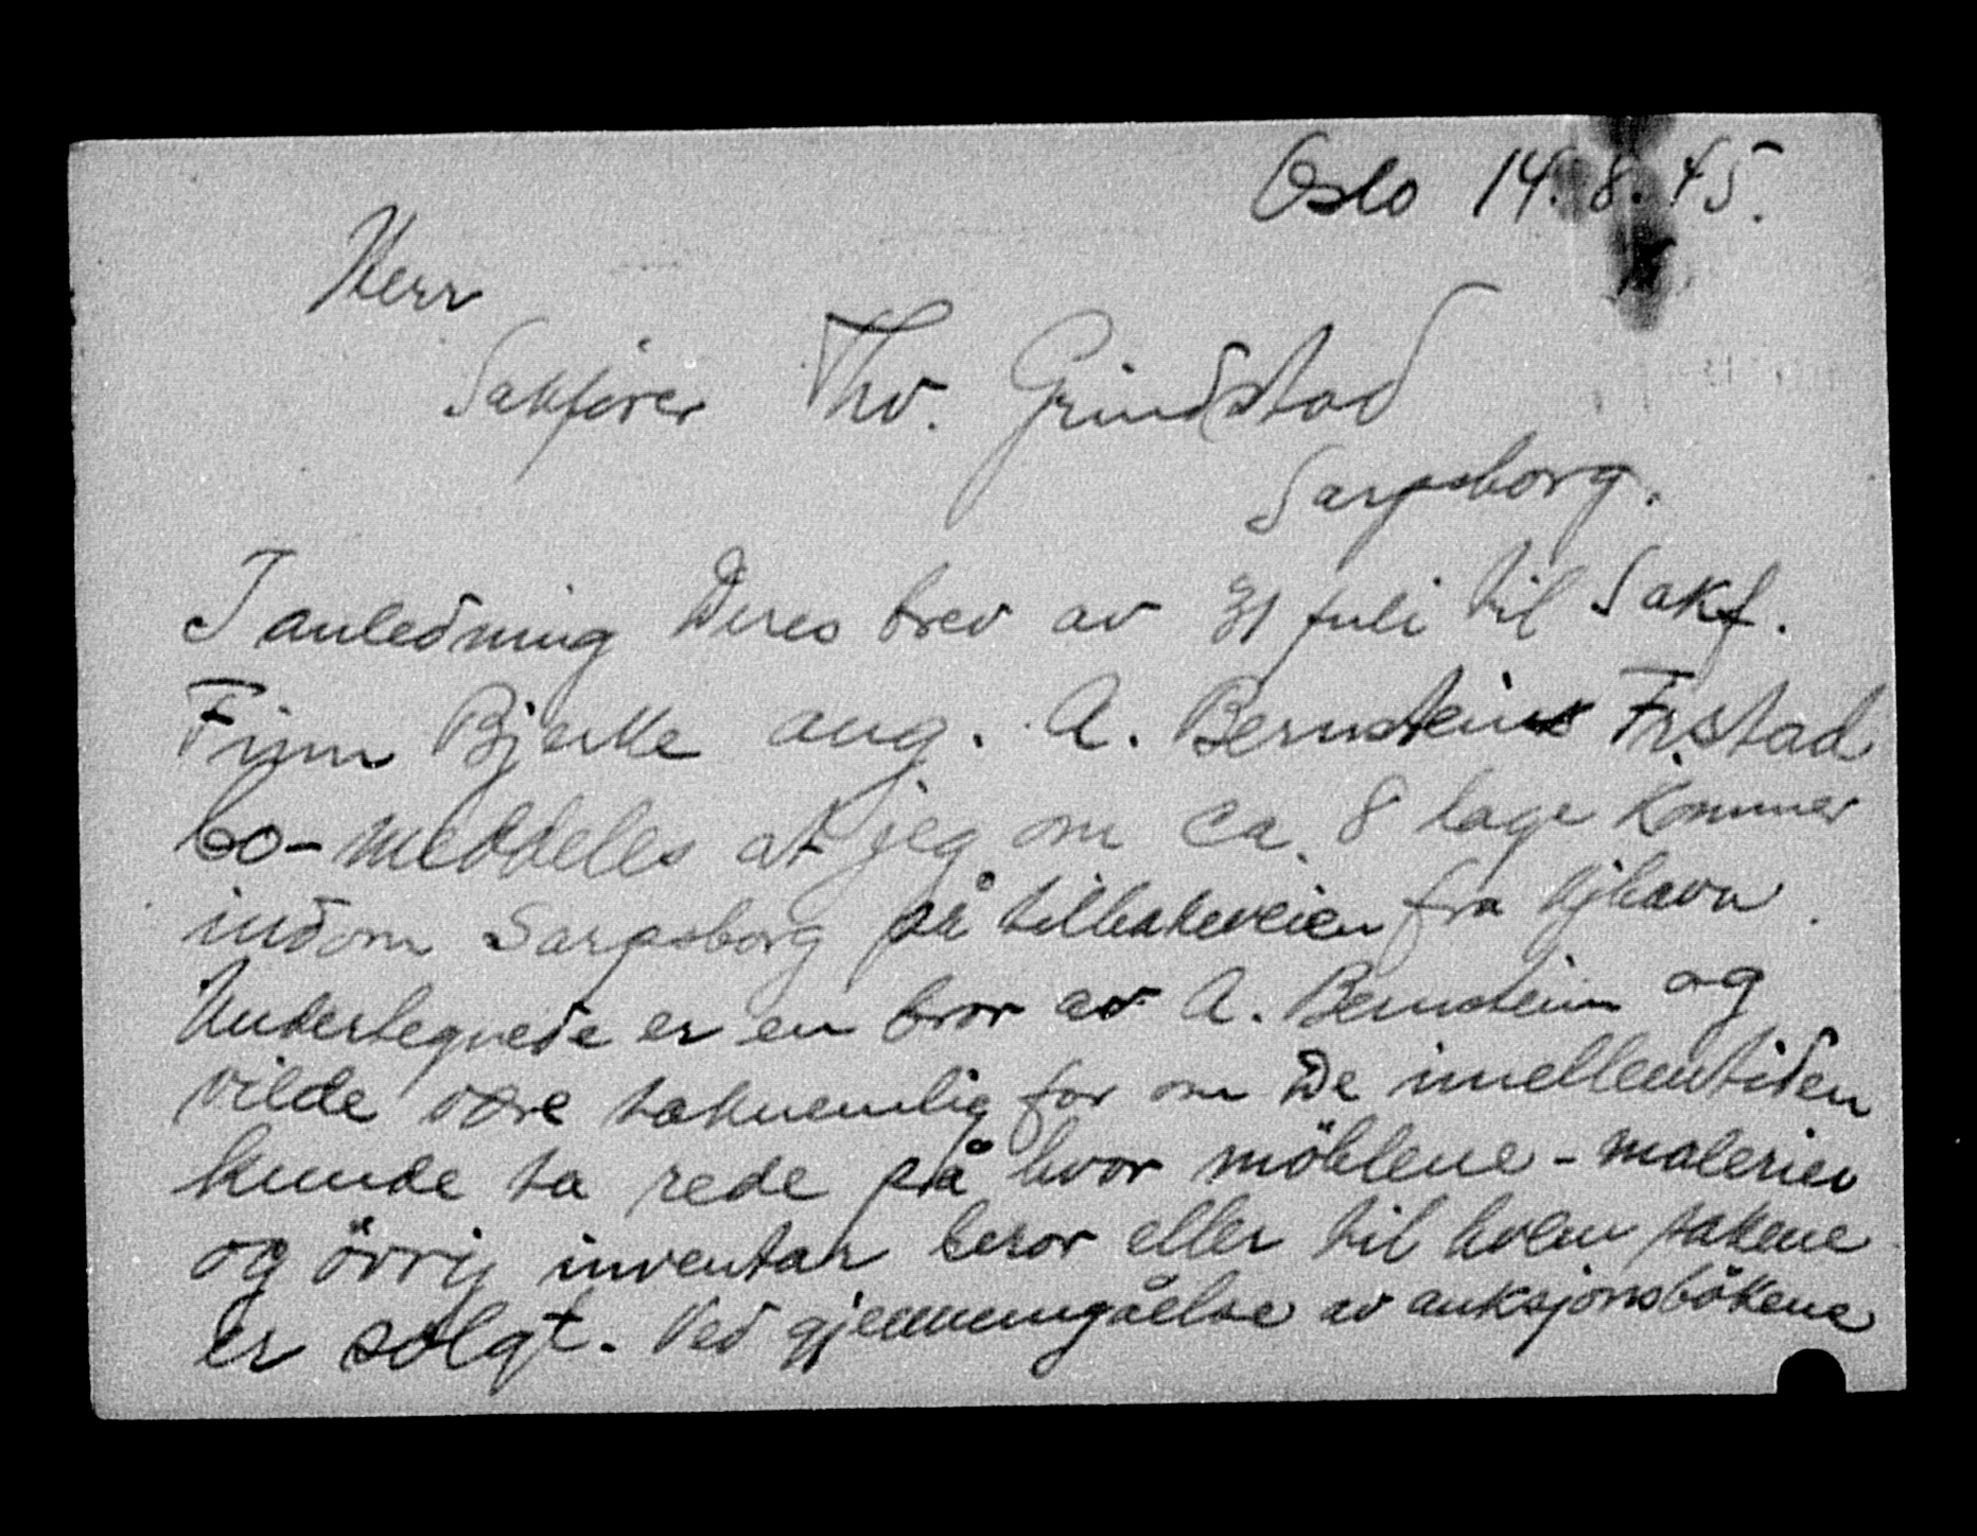 Oslo 14.8.45.
Herr
Sakfører Thv. Grindstad
Sarpsborg.
I anledning Deres brev av 31 juli til Sakf.
Finn Bjerke ang. A. Bernstein Fr.stad
bo - meddeles at jeg om ca. 8 dage kommer
indom Sarpsborg på tilbakeveien fra Kjhavn.
Undertegnede er en bror av A. Bernstein og
vilde være taknemlig for om De imellemtiden
kunde ta rede på hvor möblene - malerier
og övrig inventar beror eller til hvem sakene
er solgt. Ved gjennemgåelse av auksjonsbökene